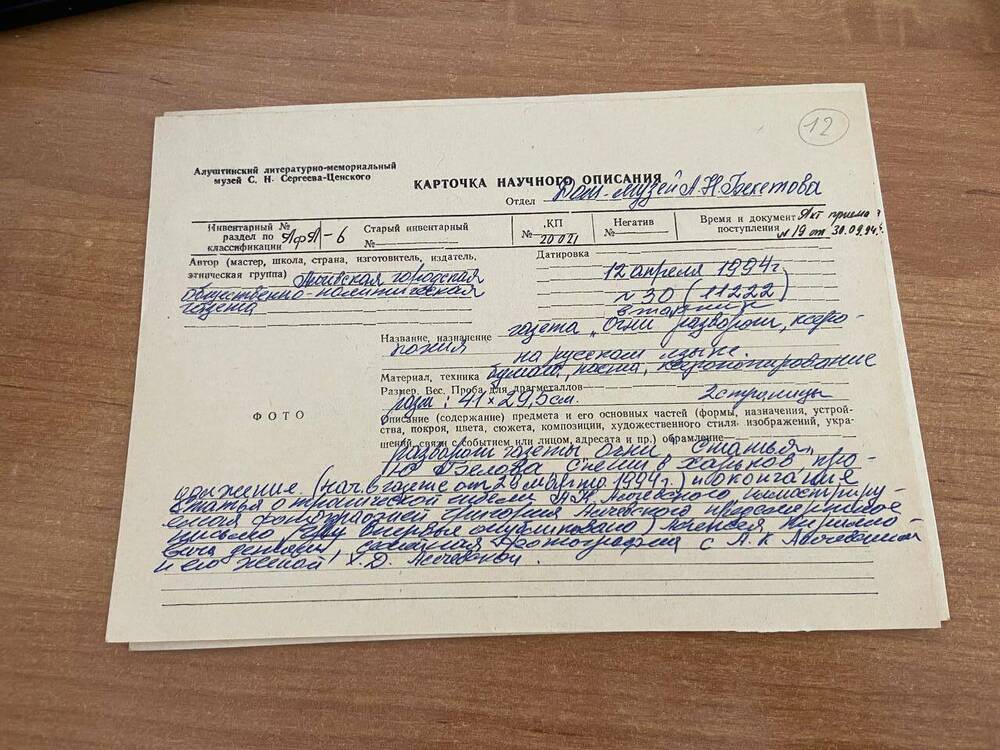 12
Алуштинский литературно-мемориальный
музей С. Н. Сергеева-Ценского
КАРТОЧКА НАУЧНОГО ОПИСАНИЯ
Отдел Дом-музей А.Н. Бекетова
Инвентарный № раздел по классификации АфА-6
Старый инвентарный №
КП № 20021
Негатив №
Время и документ поступления Акт приема № 19 от 30.09.94г.
Автор (мастер, школа, страна, изготовитель, издатель,
этническая группа) Алчевская городская
общественно-политическая
газета
Датировка
12 апреля 1994г
№ 30 (11222)
вторник
Название, назначение газета "Огни" разворот, ксеро-
копия на русском языке.
Материал, техника бумага, паста, ксерокопирование
Размер. Вес. Проба для драгметаллов
разм: 41 × 29,5 см. 2 страницы
ФОТО
Описание (содержание) предмета и его основных частей (формы, назначения, устрой-
ства, покроя, цвета, сюжета, композиции, художественного стиля изображений, укра-
шений, связи с событием или лицом, адресата и пр.) обрамление
разворот газеты Огни, статья
Ю. Белова Спеши в Харьков, про-
должение (нач. в газете от 28 марта 1994г.) и окончание
статья о трагической гибели А.К. Алчевского иллюстриру-
емая фотографией Григория Алчевского предсмертное
письмо (впервые опубликовано) Алексея Кирилло-
вича детям, фотография с А.К Алчевским
и его женой Х.Д. Алчевской.